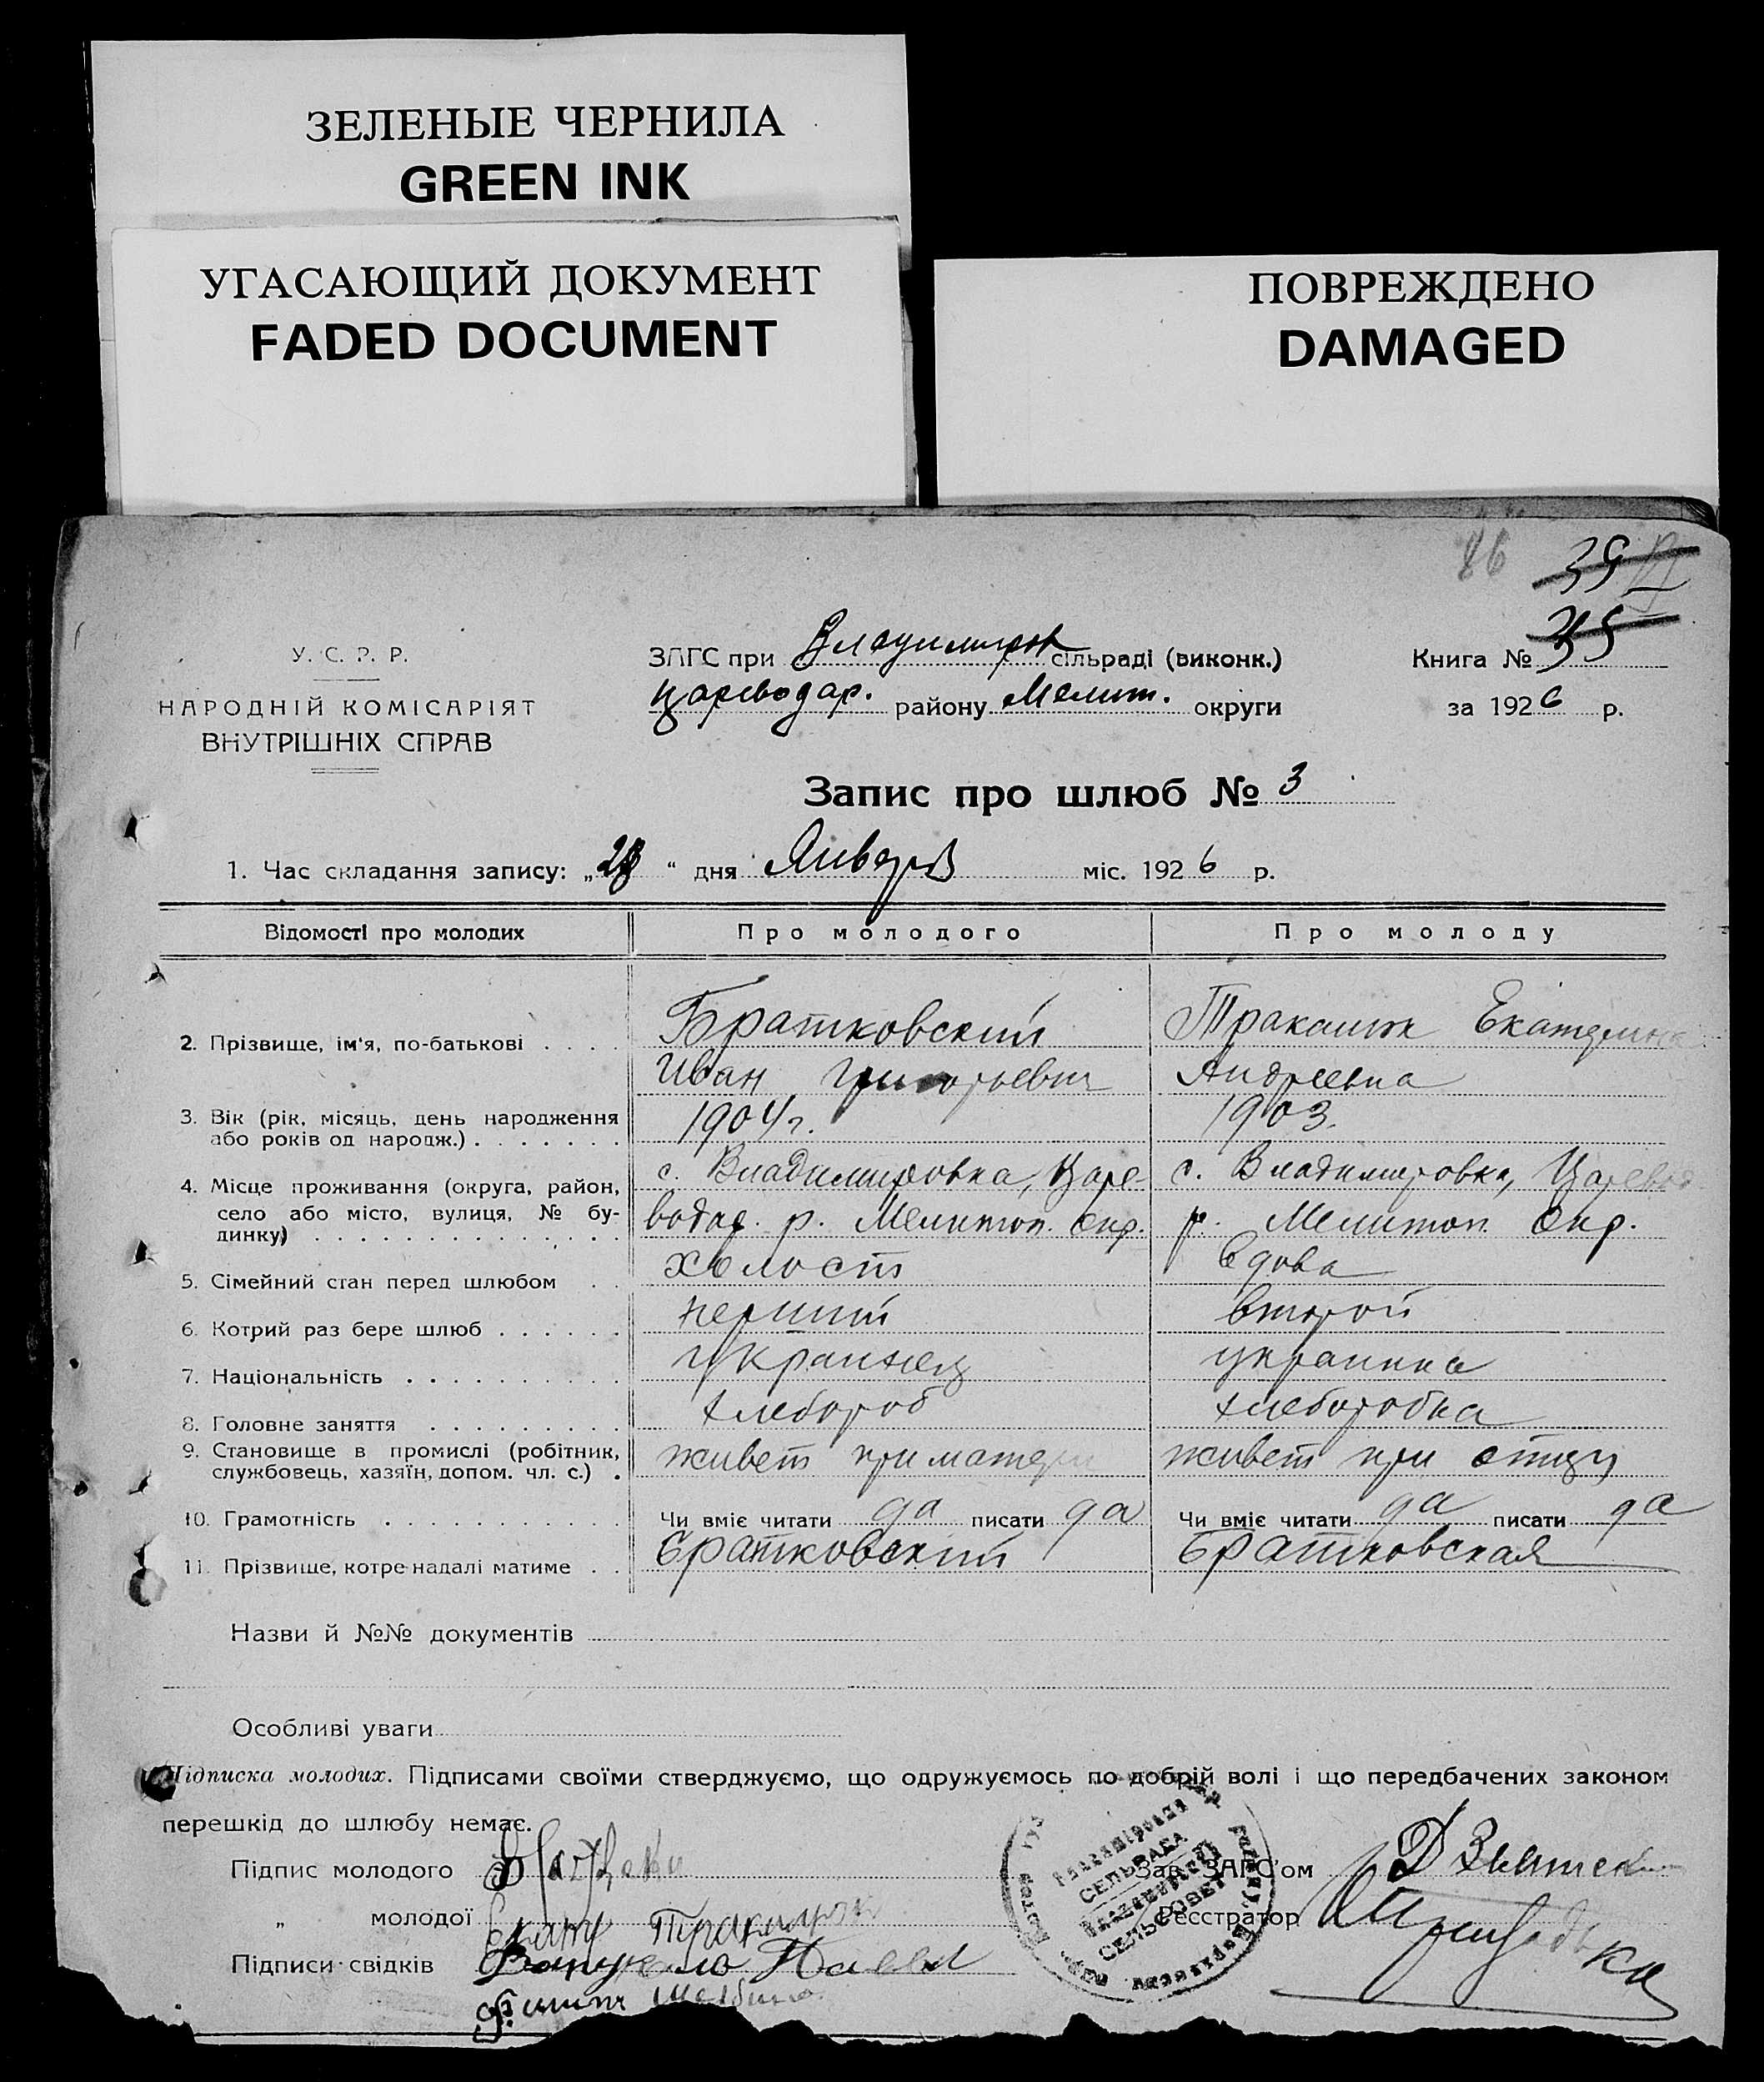 ЗЕЛЕНЫЕ ЧЕРНИЛА
GREEN INK
УГАСАЮЩИЙ ДОКУМЕНТ
FADED DOCUMENT
ПОВРЕЖДЕНО
DAMAGED
86
39
35
У. С. Р. Р.
НАРОДНІЙ КОМІСАРІЯТ
ВНУТРІШНІХ СПРАВ
ЗАГС при Владимиров сільраді (виконк.)
Цареводар. району Мелит. округи
Книга №
за 1926 р.
Запис про шлюб № 3
1. Час складання запису: „28“ дня Января міс. 1926 р.
Відомості про молодих
Про молодого
Про молоду
2. Прізвище, ім'я, по-батькові
Братковский
Иван Григорьевич
Тракалюк Екатерина
Андреевна
3. Вік (рік, місяць, день народження
або років од народж.)
1904 г.
1903.
4. Місце проживання (округа, район,
село або місто, вулиця, № бу-
динку)
с. Владимировка, Царе-
водар. р. Мелитоп. окр.
с. Владимировка, Царевод.
р. Мелитоп. окр.
5. Сімейний стан перед шлюбом
холост
вдова
6. Котрий раз бере шлюб
первый
второй
7. Національність
украинец
украинка
8. Головне заняття
хлебороб
хлеборобка
9. Становище в промислі (робітник,
службовець, хазяїн, допом. чл. с.)
живет при матери
живет при отцу
10. Грамотність
Чи вміє читати да писати да
Чи вміє читати да писати да
11. Прізвище, котре надалі матиме
Братковский
Братковская
Назви й №№ документів
Особливі уваги
Підписка молодих. Підписами своїми стверджуємо, що одружуємось по добрій волі і що передбачених законом
перешкід до шлюбу немає.
Підпис молодого
Зав. ЗАГС'ом
„ молодої
Реєстратор
Підписи свідків
СЕЛЬРАДА
СЕЛЬСОВЕТ